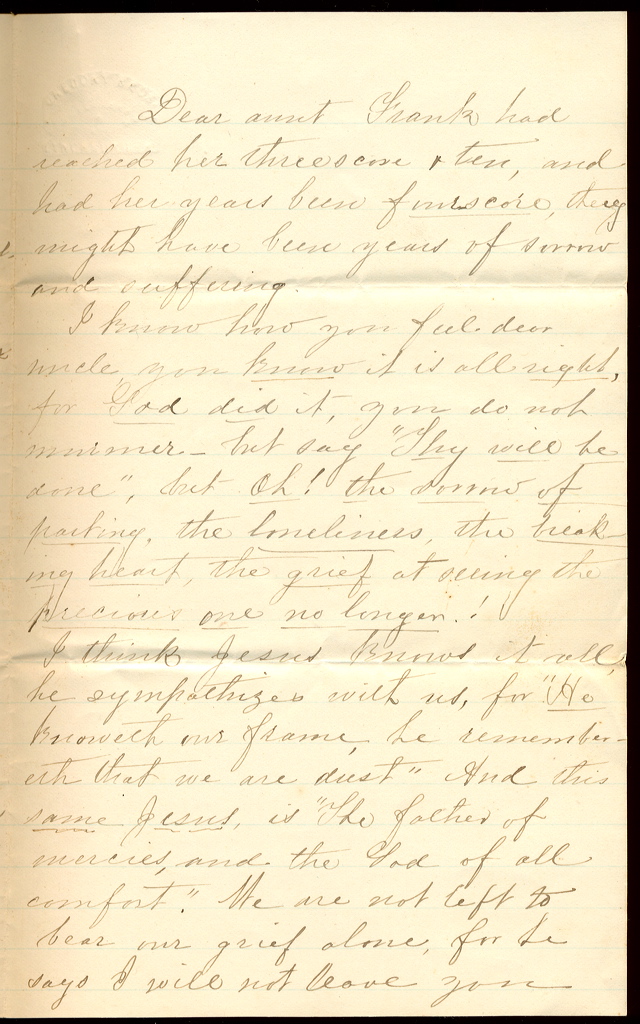 Dear aunt Frank had
reached her threescore & ten, and
had her years been fourscore, they
might have been years of sorrow
and suffering.
I know how you feel dear
uncle, you know it is all right,
for God did it, you do not
murmer - but say "Thy will be
done", but Oh! the sorrow of
parting, the loneliness, the break-
ing heart, the grief at seeing the
precious one no longer.!
I think Jesus knows it all,
he sympathizes with us, for "He
knoweth our frame, he remember-
eth that we are dust" And this
same Jesus, is "The father of
mercies, and the God of all
comfort." We are not left to
bear our grief alone, for he
says I will not leave you